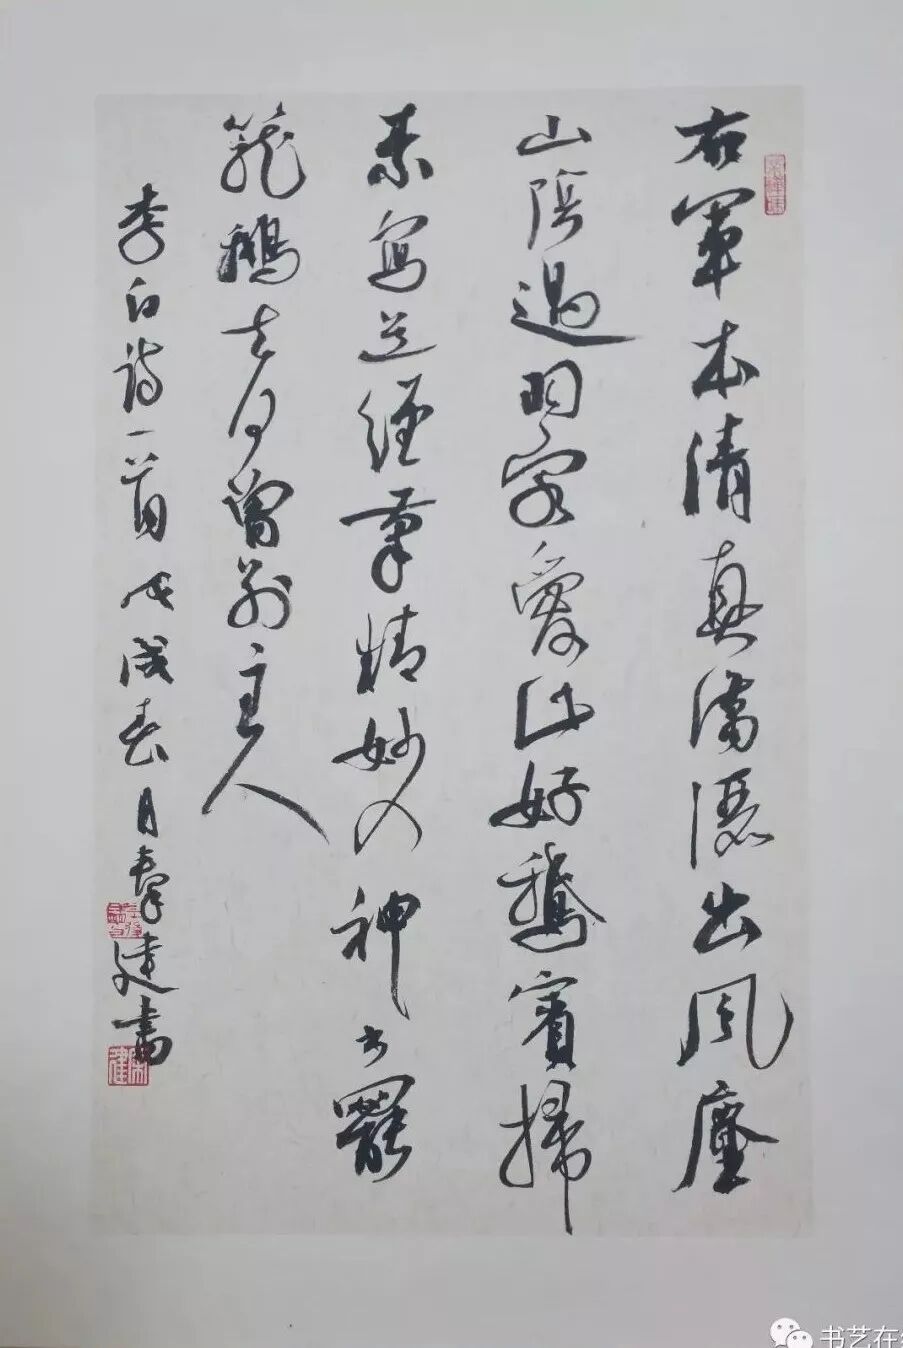 右軍本清真瀟灑出風塵
山陰過羽客愛此好鵝賓掃
素寫道經筆精妙入神書罷
籠鵝去何曾別主人
李白詩一首戊戌春月建書
书艺在